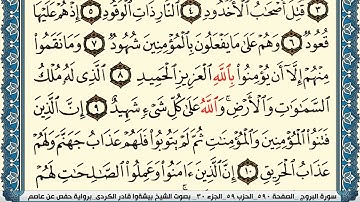 ٣ قُتِلَ أَصْحَٰبُ ٱلْأُخْدُودِ ٤ ٱلنَّارِ ذَاتِ ٱلْوَقُودِ ٥ إِذْ هُمْ عَلَيْهَا
قُعُودٌ ٦ وَهُمْ عَلَىٰ مَا يَفْعَلُونَ بِٱلْمُؤْمِنِينَ شُهُودٌ ٧ وَمَا نَقَمُوا۟
مِنْهُمْ إِلَّآ أَن يُؤْمِنُوا۟ بِٱللَّهِ ٱلْعَزِيزِ ٱلْحَمِيدِ ٨ ٱلَّذِى لَهُۥ مُلْكُ
ٱلسَّمَٰوَٰتِ وَٱلْأَرْضِ ۚ وَٱللَّهُ عَلَىٰ كُلِّ شَىْءٍ شَهِيدٌ ٩ إِنَّ ٱلَّذِينَ
فَتَنُوا۟ ٱلْمُؤْمِنِينَ وَٱلْمُؤْمِنَٰتِ ثُمَّ لَمْ يَتُوبُوا۟ فَلَهُمْ عَذَابُ جَهَنَّمَ وَلَهُمْ
عَذَابُ ٱلْحَرِيقِ ١٠ إِنَّ ٱلَّذِينَ ءَامَنُوا۟ وَعَمِلُوا۟ ٱلصَّٰلِحَٰتِ لَهُمْ
سورة البروج _الصفحة ٥٩٠_الحزب ٥٩_الجزء ٣٠_ بصوت الشيخ بيشةوا قادر الكردي_برواية حفص عن عاصم